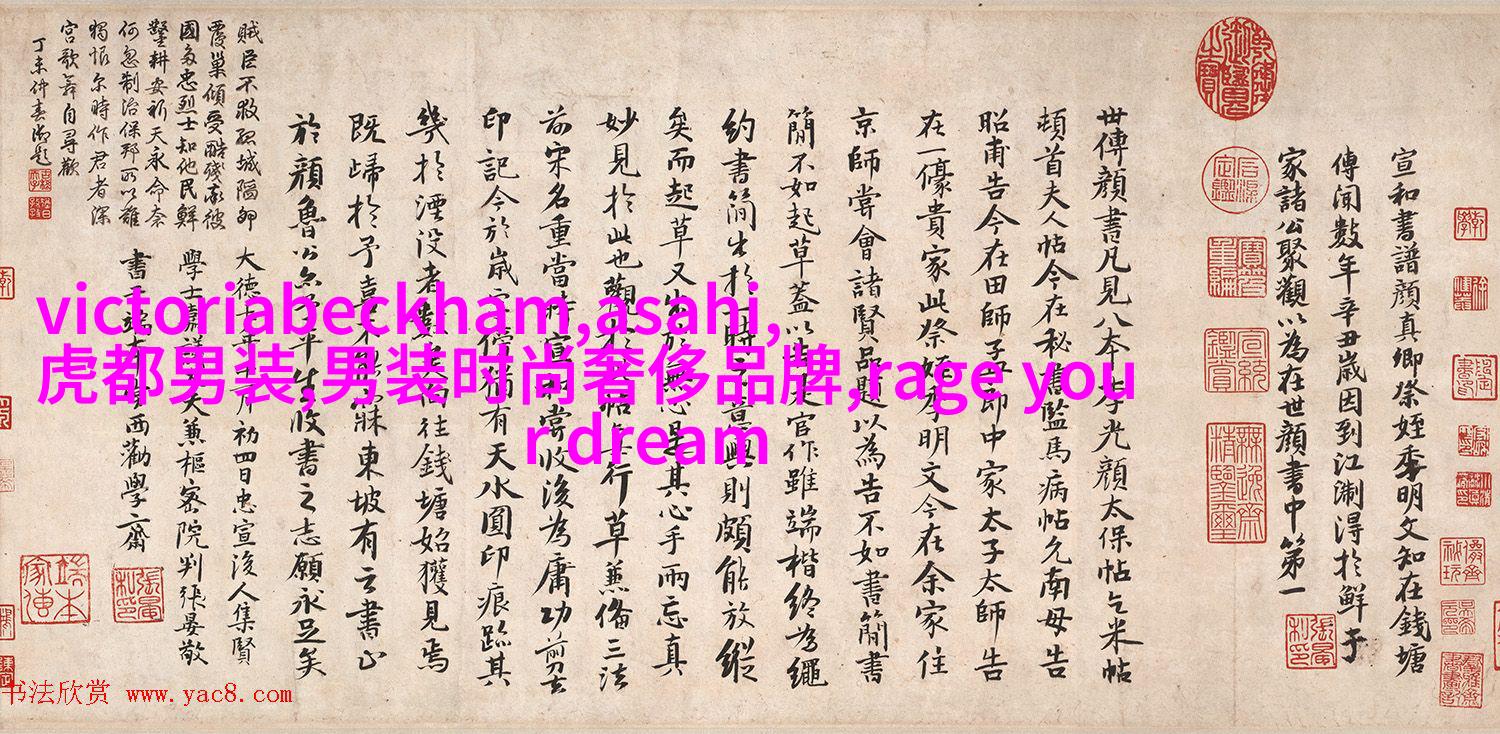 宣和書譜顏真卿祭姪季明文知在錢塘
傳聞數年辛丑歲因到江淛得於鮮于
家諸公聚觀以為在世顏書中第一
世傳顏書凡見八本李光顏太保帖乞米帖
頓首夫人帖今在秘書監馬病帖允南母告
昭甫告今在田師孟郎中家太子太師告
在一儫貴家此祭姪季明文今在余家住
京師嘗會諸賢品題以為告不如書簡書
簡不如起草蓋以告是官作雖端楷終為繩
約書簡出於一時之意興則頗能放縱
矣而起草又出於無心是其心手兩忘真
妙見於此也觀於此帖行草兼備三法
前宋名重當時宣和嘗收後為庸功剪去
印記今於歲字傍猶有天水圓印痕跡其
幾於湮沒者數矣偶往錢塘始獲見焉
既歸於予喜不能寐東坡有云書止
於顏魯公亦予平生收書之志願永足矣
大德七年十月初四日忠宣後人集賢
學士嘉議大夫兼樞密院判張晏敬
書于端本堂西勸學齋
賊臣不救孤城隘卵
覆巢傾受酷殘豪彼
國多忠烈士知他民鮮
耕安祈天永命奈
何忽制治保邦所以難
獨恨尔時作君者深
宮歌舞自尋歡
丁未仲春御題
victoriabeckham,asahi,
虎都男装,男装时尚奢侈品牌,rage you
r dream
书法欣赏 www.yac8.com